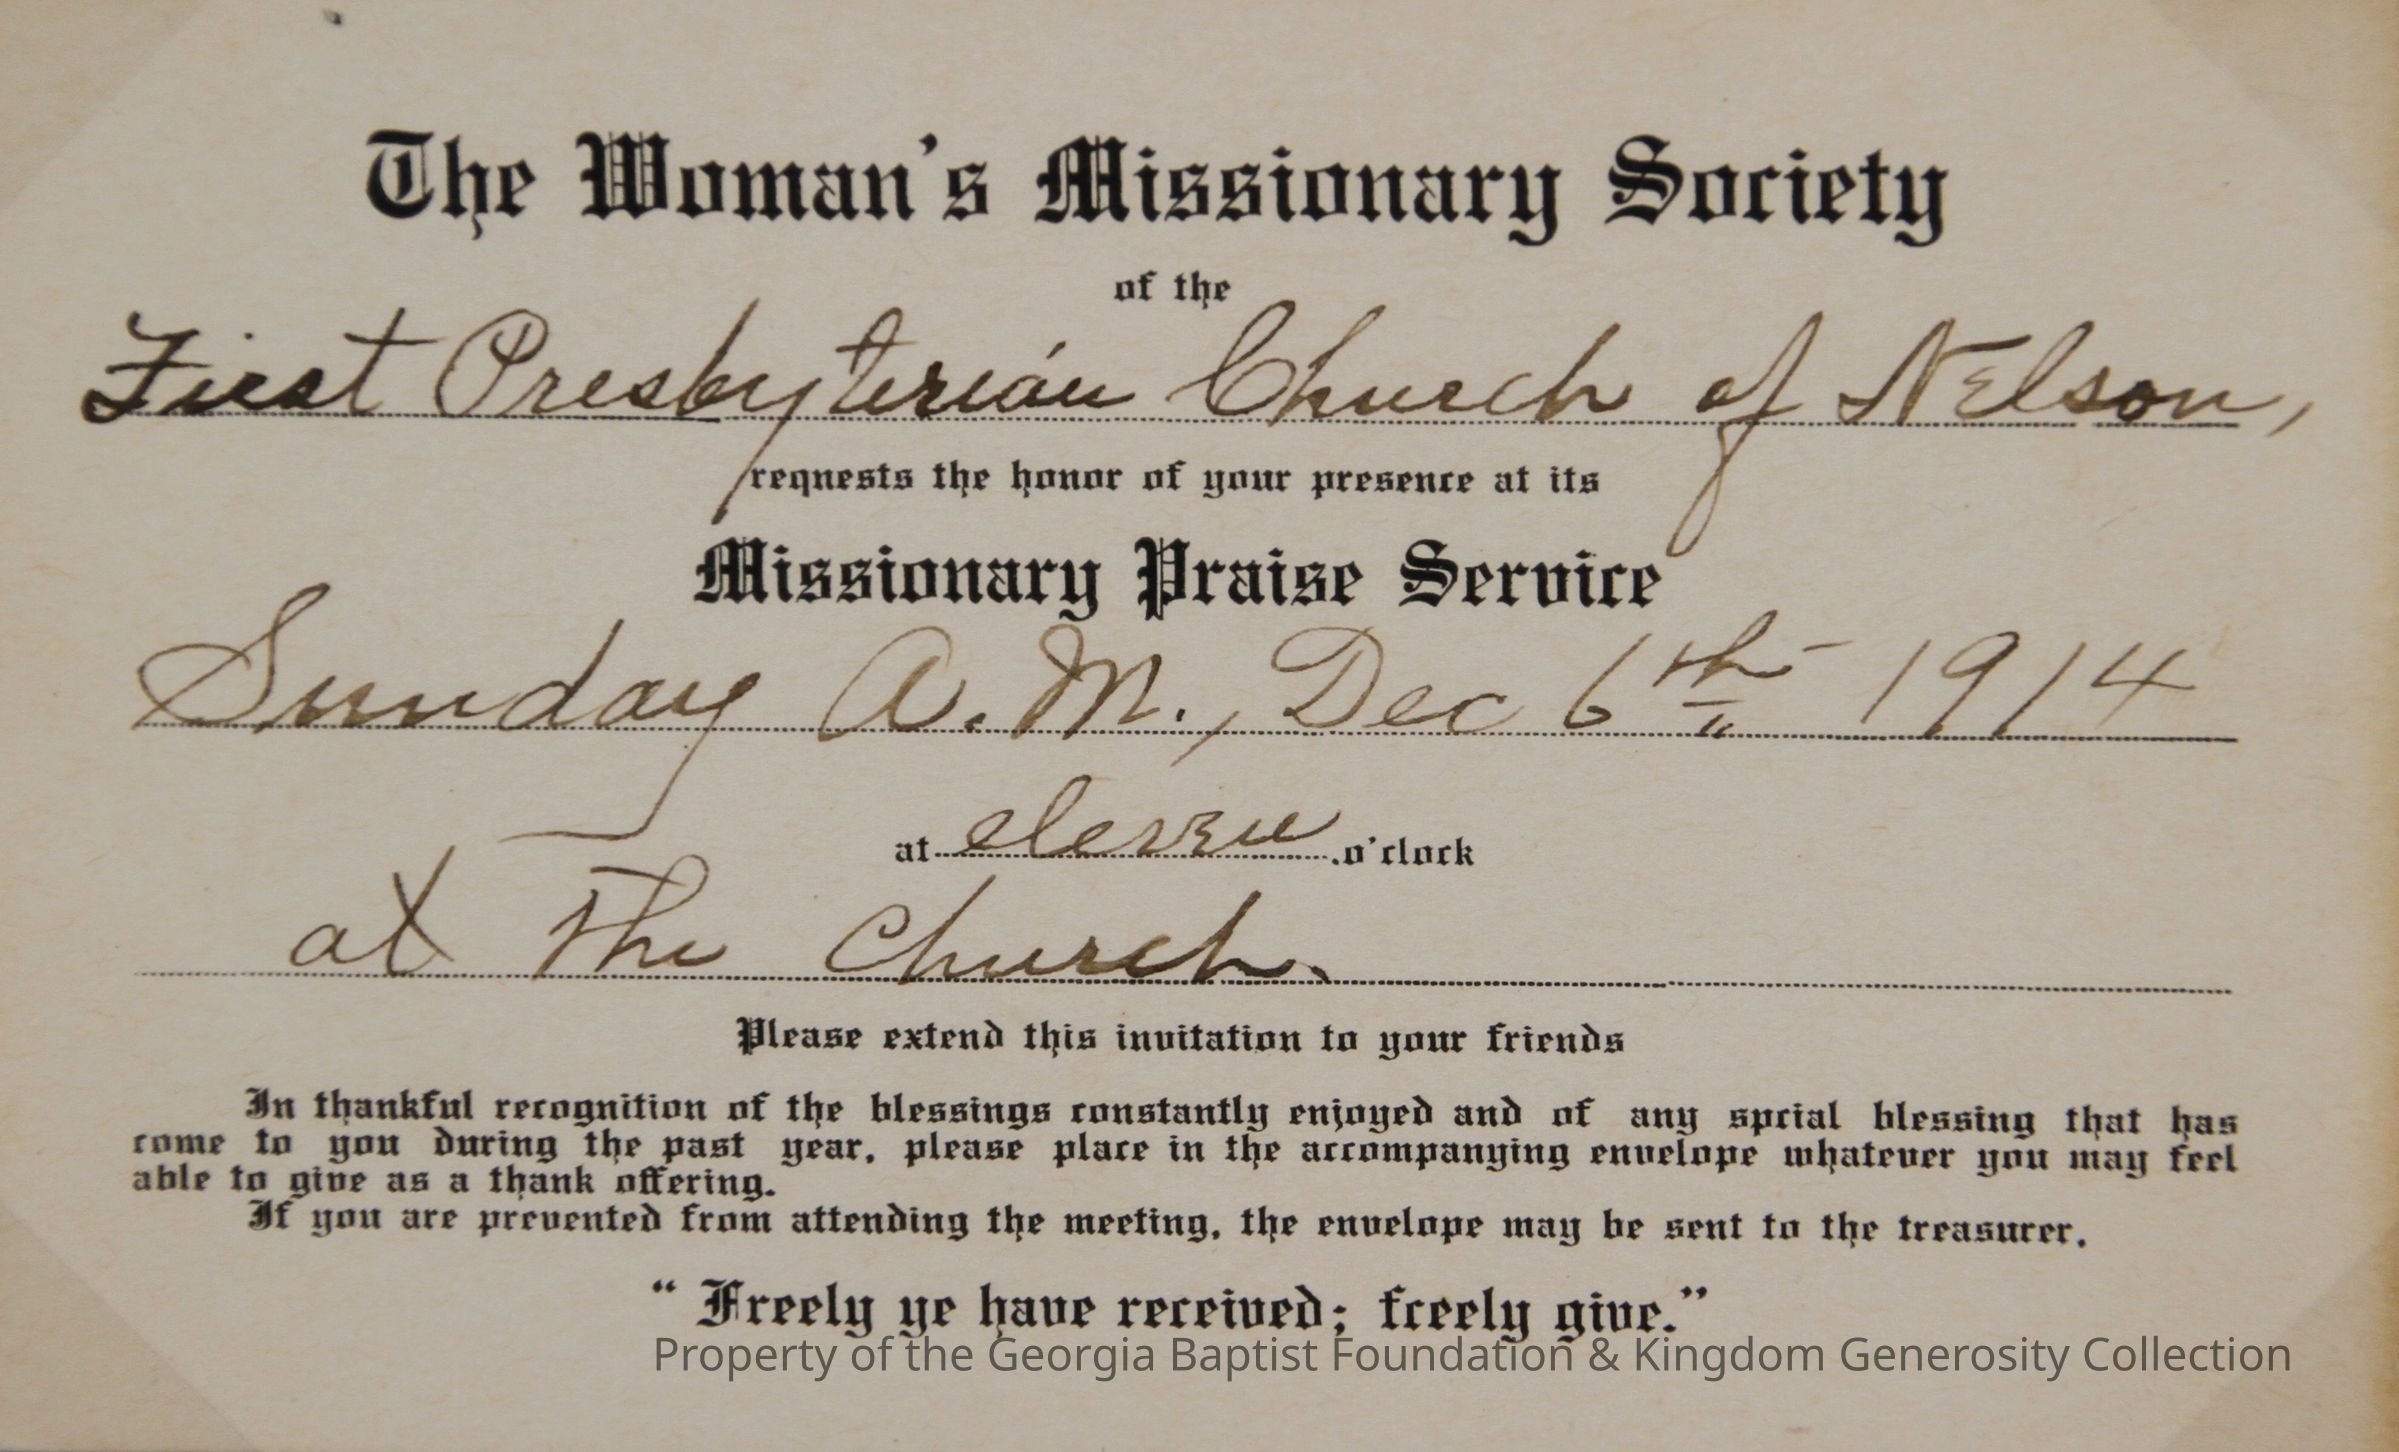 The Woman's Missionary Society
of the
First Presbyterian Church of Nelson,
requests the honor of your presence at its
Missionary Praise Service
Sunday A.M., Dec 6th 1914
at eleven o'clock
at the church.
Please extend this invitation to your friends
In thankful recognition of the blessings constantly enjoyed and of any spcial blessing that has
come to you during the past year, please place in the accompanying envelope whatever you may feel
able to give as a thank offering.
If you are prevented from attending the meeting, the envelope may be sent to the treasurer.
"Freely ye have received; freely give."
Property of the Georgia Baptist Foundation & Kingdom Generosity Collection